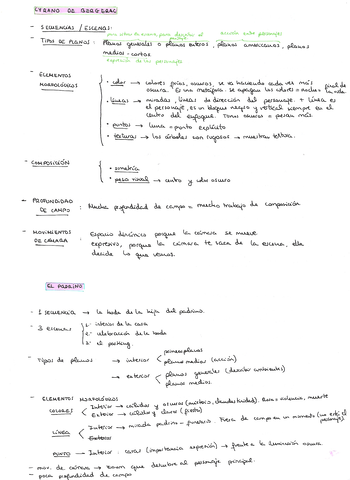 CYRANO DE BERGERAC
- SECUENCIAS / ESCENAS:
- TIPOS DE PLANOS: Planos generales o planos enteros, planos americanos, planos
medios - cortos
expresión de los personajes
- ELEMENTOS
MORFOLÓGICOS
• color → colores fríos, oscuros, se va haciendo cada vez más
oscura. Es una metáfora. Se apagan los colores = noche =
final de la vida
• líneas → miradas, líneas de dirección del personaje. + línea es
el personaje, es un bloque negro y vertical siempre en el
centro del enfoque. Tonos oscuros = pesan más.
• puntos → luna = punto explícito
• texturas → los árboles son rugosos → muestran textura.
- COMPOSICIÓN
• simetría
• peso visual → centro y color oscuro
- PROFUNDIDAD
DE CAMPO: Mucha profundidad de campo = mucho trabajo de composición
- MOVIMIENTOS
DE CÁMARA: Espacio dinámico porque la cámara se mueve
expresivo, porque la cámara te saca de la escena, ella
decide lo que vemos.
EL PADRINO
- 1 secuencia → la boda de la hija del padrino.
- 3 escenas
1- interior de la casa
2- celebración de la boda
3- el parking.
- Tipos de planos → interior
primeros planos
planos medios (acción)
→ exterior
planos generales (describir ambientes)
planos medios.
- ELEMENTOS MORFOLÓGICOS
COLORES
Interior → cálidos y oscuros
Exterior → cálidos y claros (fiesta)
LÍNEA
Interior → mirada padrino - funerario. Fuera de campo en un momento (no está el personaje).
Exterior
PUNTO → Interior: caras (importancia expresión) → frente a la iluminación oscura
- mov. de cámara → zoom que descubre al personaje principal.
- poca profundidad de campo